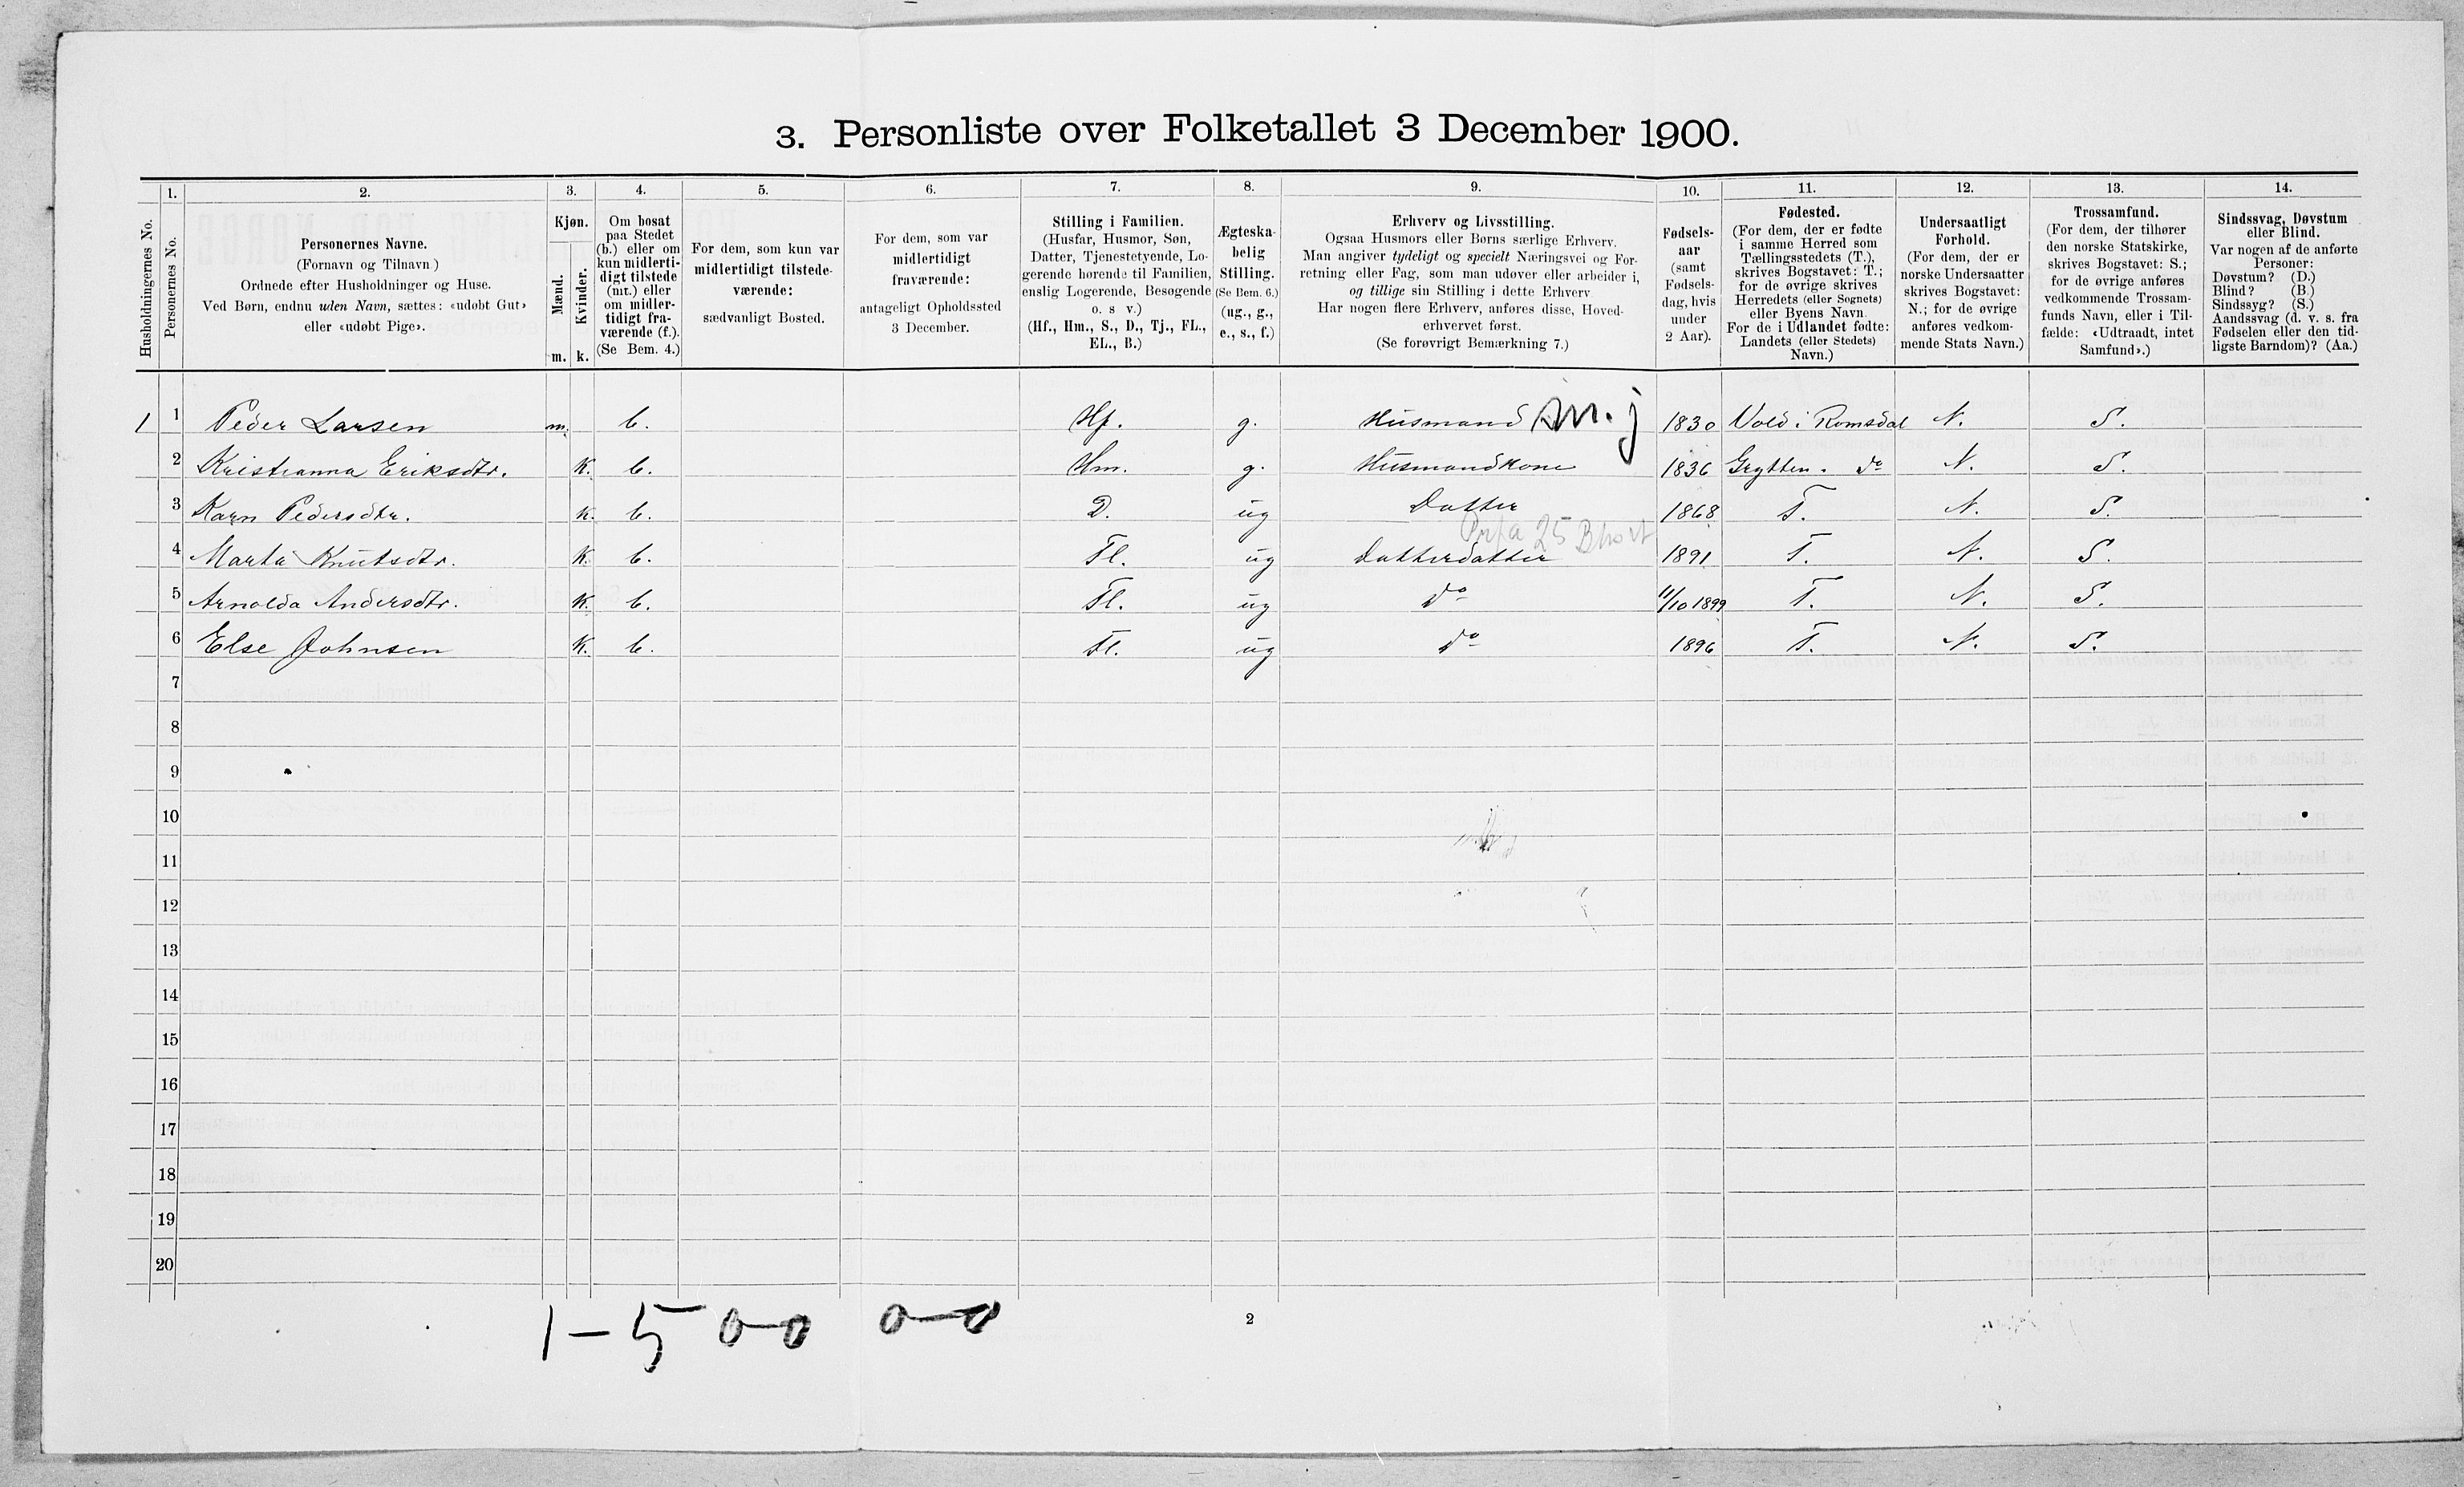 3. Personliste over Folketallet 3 December 1900.
1. 2. 3. 4. 5. 6. 7. 8. 9. 10. 11. 12. 13. 14.
Husholdningernes No.
Personernes No.
Personernes Navne.
(Fornavn og Tilnavn.)
Ordnede efter Husholdninger og Huse.
Ved Børn, endnu uden Navn, sættes: «udøbt Gut»
eller «udøbt Pige».
Kjøn.
Mænd.
Kvinder.
m. k.
Om bosat
paa Stedet
(b.) eller om
kun midlerti-
digt tilstede
(mt.) eller
om midler-
tidigt fra-
værende (f.).
(Se Bem. 4.)
For dem, som kun var
midlertidigt tilstede-
værende:
sædvanligt Bosted.
For dem, som var
midlertidigt
fraværende:
antageligt Opholdssted
3 December.
Stilling i Familien.
(Husfar, Husmor, Søn,
Datter, Tjenestetyende, Lo-
gerende hørende til Familien,
enslig Logerende, Besøgende
o. s v.)
(Hf., Hm., S., D., Tj., FL.,
EL., B.)
Ægteska-
belig
Stilling.
(Se Bem. 6.)
(ug., g.,
e., s., f.)
Erhverv og Livsstilling.
Ogsaa Husmors eller Børns særlige Erhverv.
Man angiver tydeligt og specielt Næringsvei og For-
retning eller Fag, som man udøver eller arbeider i,
og tillige sin Stilling i dette Erhverv
Har nogen flere Erhverv, anføres disse, Hoved-
erhvervet først.
(Se forøvrigt Bemærkning 7.)
Fødsels-
aar
(samt
Fødsels-
dag, hvis
under
2 Aar).
Fødested.
(For dem, der er fødte
i samme Herred som
Tællingsstedets (T.),
skrives Bogstavet: T.;
for de øvrige skrives
Herredets (eller Sognets)
eller Byens Navn
For de i Udlandet fødte:
Landets (eller Stedets)
Navn.)
Undersaatligt
Forhold.
(For dem, der er
norske Undersaatter
skrives Bogstavet:
N.; for de øvrige
anføres vedkom-
mende Stats Navn.)
Trossamfund.
(For dem, der tilhører
den norske Statskirke,
skrives Bogstavet: S.;
for de øvrige anføres
vedkommende Trossam-
funds Navn, eller i Til-
fælde: «Udtraadt, intet
Samfund».)
Sindssvag, Døvstum
eller Blind.
Var nogen af de anførte
Personer:
Døvstum? (D.)
Blind? (B.)
Sindssyg? (S.)
Aandssvag (d. v. s. fra
Fødselen eller den tid-
ligste Barndom)? (Aa.)
1 1 Peder Larsen m. b. Hf. g. Husmand m. j 1830 Vold i Romsdal N. S.
2 Kristianna Eriksdtr. K. b. Hm. g. Husmandkone 1836 Grytten. do N. S.
3 Karn Pedersdtr. K. b. D. ug Datter 1868 T. N. S.
25
4 Marta Knutsdtr. K. b. Fl. ug Datterdatter 1891 T. N. S.
5 Arnolda Andersdtr. K. b. Fl. ug do 11/10 1899 T. N. S.
6 Else Johnsen K. b. Fl. ug do 1896 T. N. S.
7
8
9
10
11
12
13
14
15
16
17
18
19
20
1-5 0-0 0-0
2